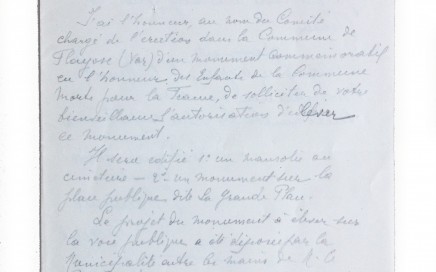 J'ai l'honneur, au nom du Comité
chargé de l'érection dans la Commune de
Flayosc (Var) d'un monument commémoratif
en l'honneur des Enfants de la Commune
morts pour la France, de solliciter de votre
bienveillance l'autorisation d'élever
ce monument.
Il sera édifié 1° un mausolée au
cimetière – 2° un monument sur la
place publique dite La Grande Place.
Le projet du monument à élever sur
la voie publique a été déposé par la
Municipalité entre les mains de M. le